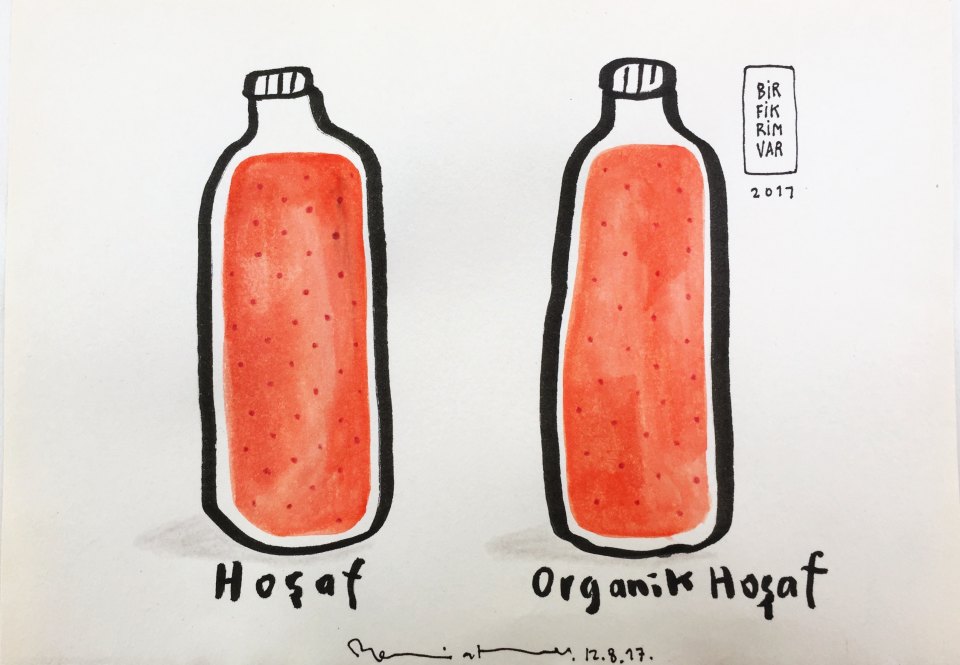 BİR
FİK
RİM
VAR
2017
Hoşaf
Organik Hoşaf
12.8.17.